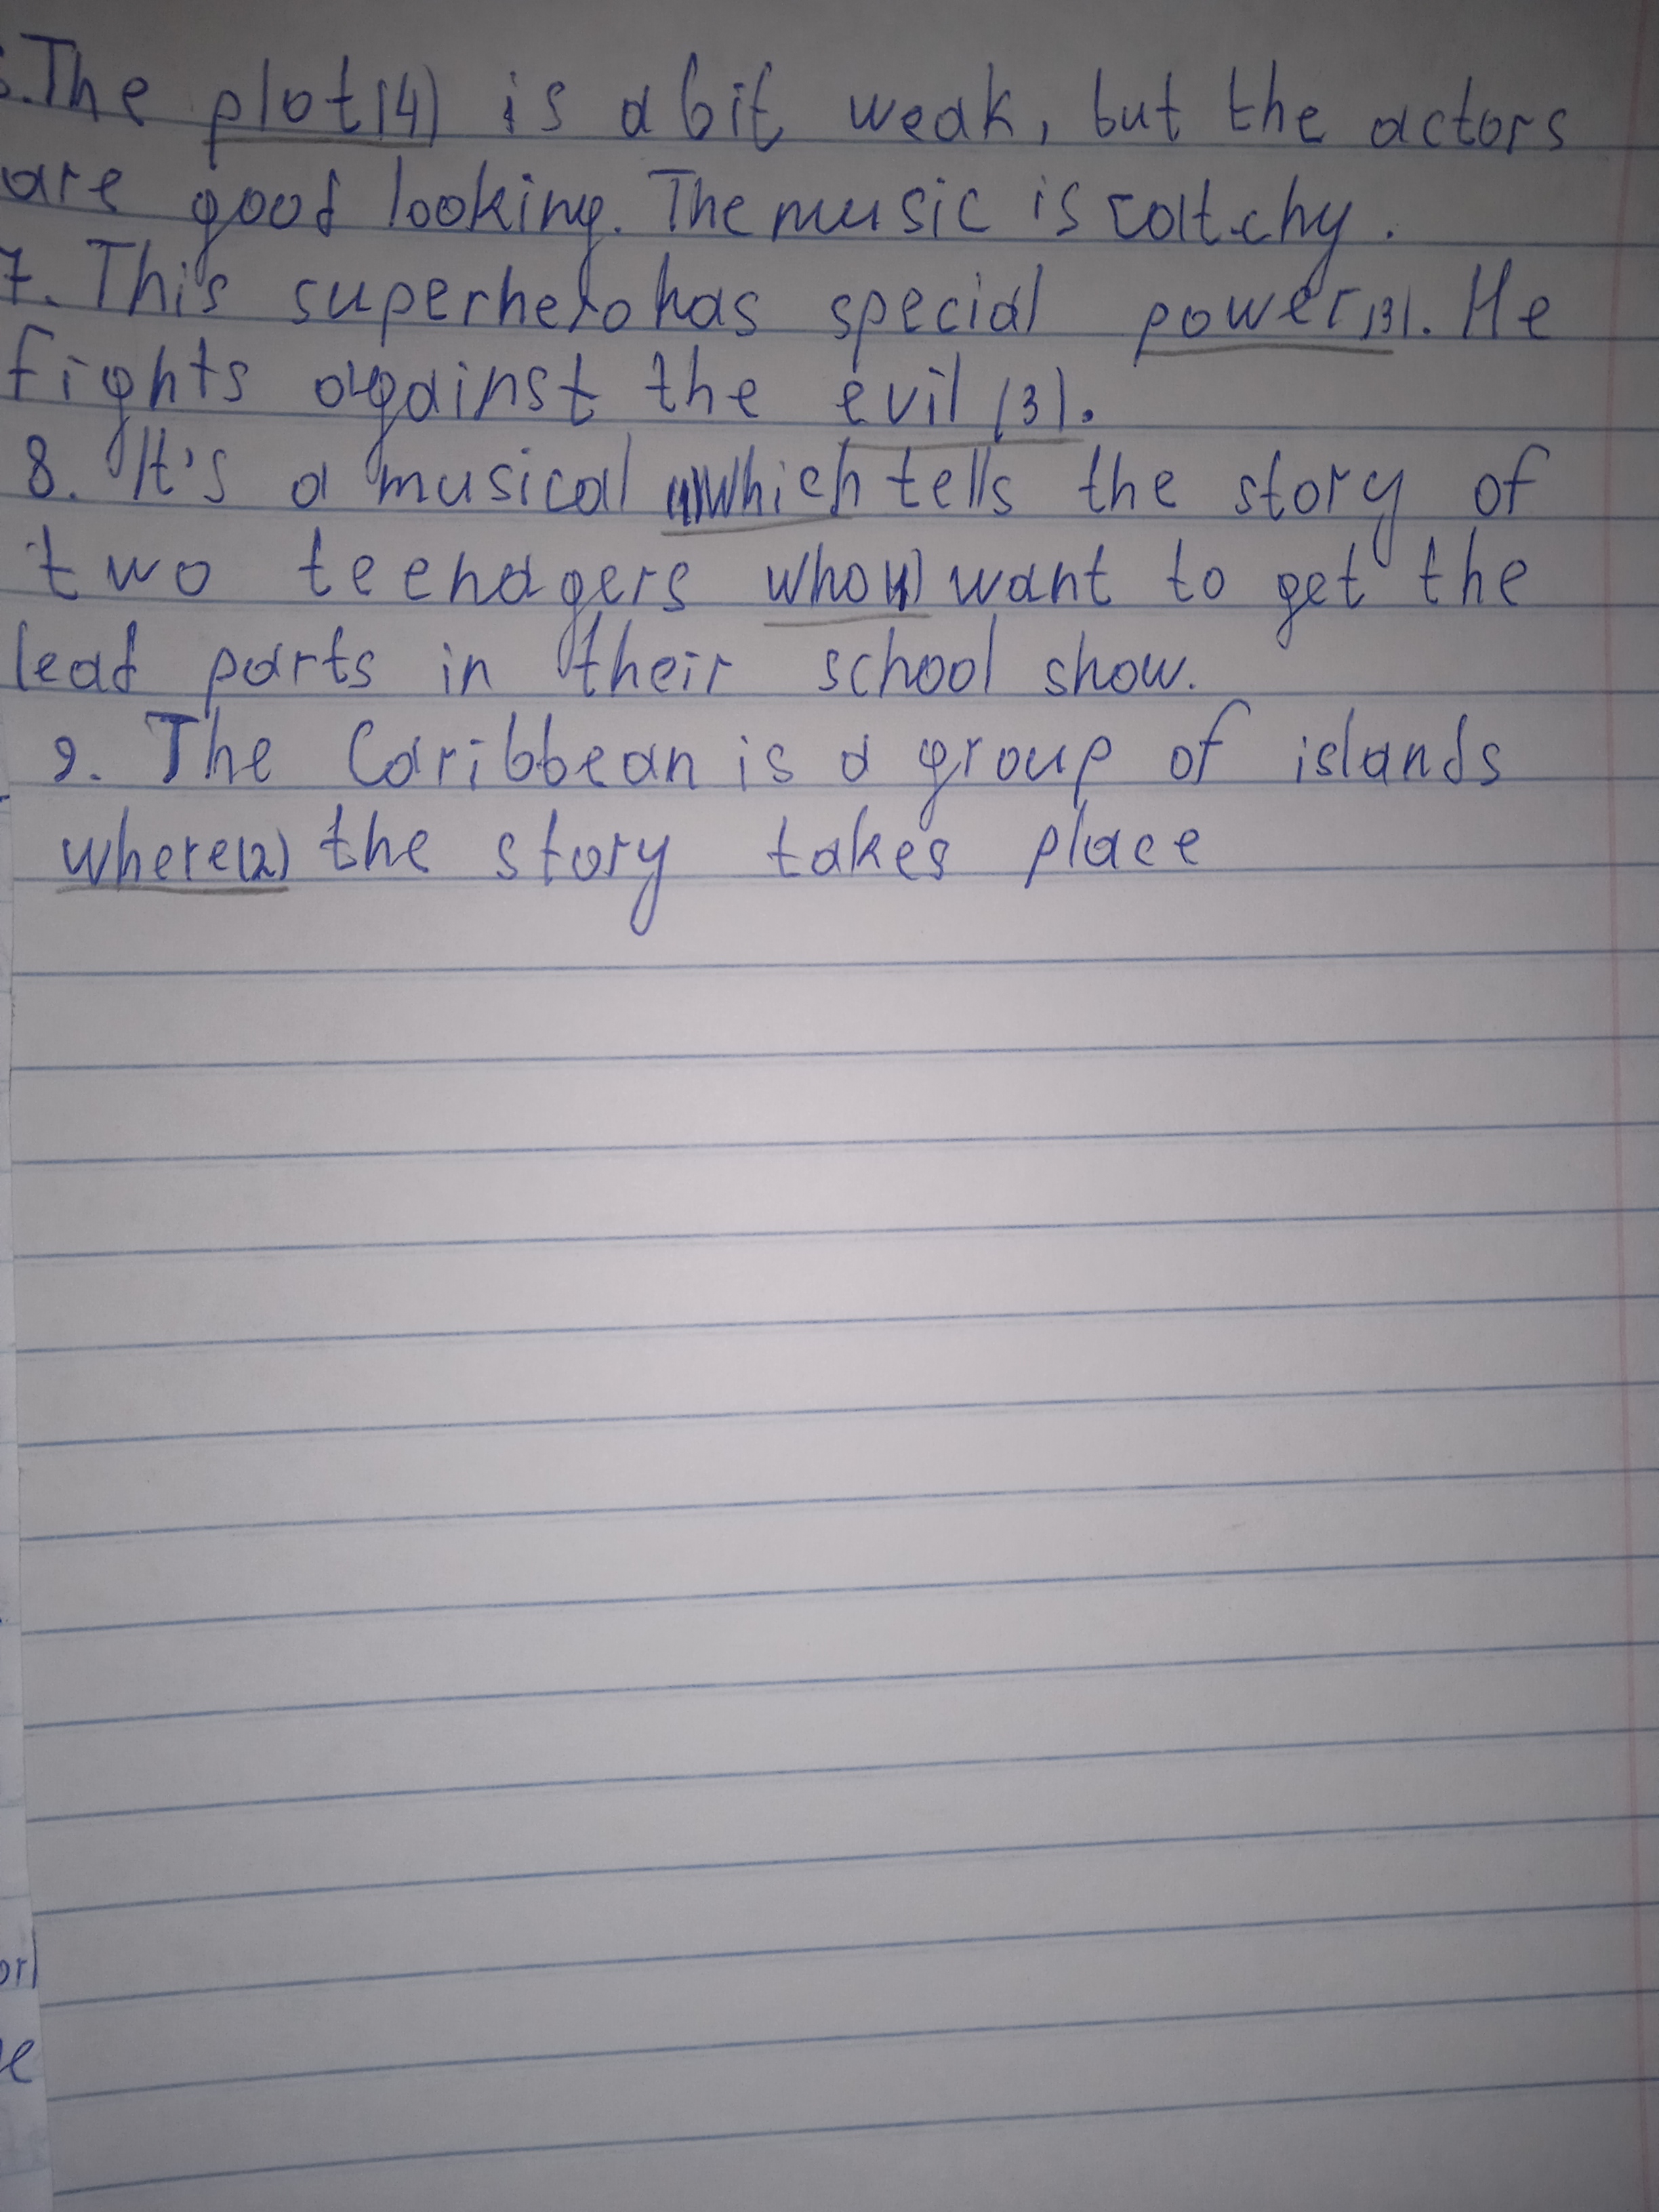 .The plot(4) is a bit weak, but the actors
are good looking. The music is catchy.
7. This superhero has special power(3). He
fights against the evil (3).
8. It's a musical which tells the story of
two teenagers who want to get the
lead parts in their school show.
9. The Caribbean is a group of islands
where(2) the story takes place